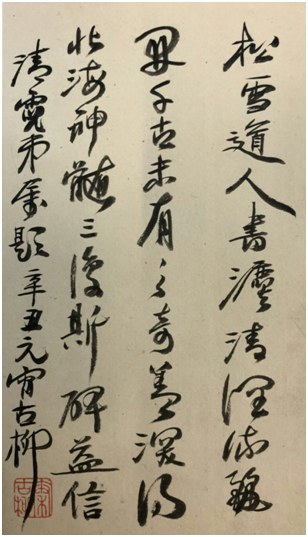 松雪道人書灋清潤流麗
開千古未有之奇蓋深得
北海神髓三復斯碑益信
清霓弟屬題辛丑元宵古柳